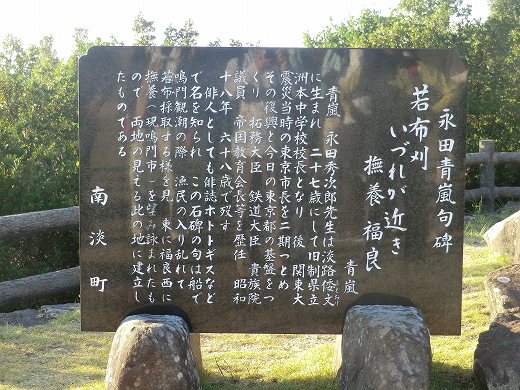 永田青嵐句碑
若布刈
いづれが近き
撫養福良
青嵐
青嵐 永田秀次郎先生は淡路倭文
に生まれ 二十七歳にして旧制県立
洲本中学校校長となり 後 関東大
震災当時の東京市長を二期つとめ
その復興と今日の東京都の基盤をつ
くり 拓務大臣 鉄道大臣 貴族院
議員 帝国教育会長等を歴任 昭和
十八年 六十八歳で歿す
俳人としても俳誌ホトトギスなど
で名を知られ この石碑の句は船で
鳴門観潮の際 漁民の入り乱れて
若布採取する様を見 東に福良西に
撫養(現鳴門市)を望み詠まれたも
ので 両地の見える此の地に建立し
たものである
南淡町